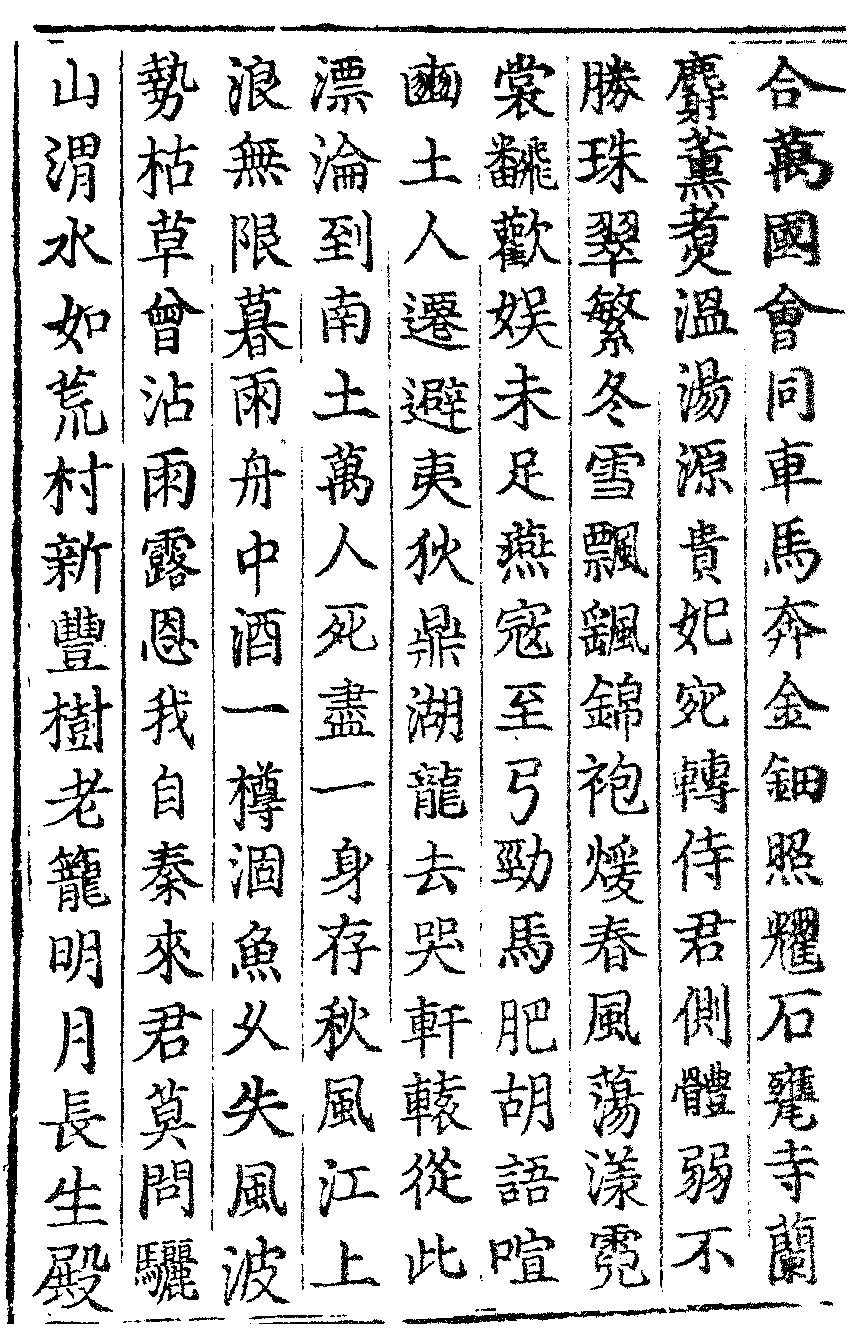 合萬國會同車馬奔金鈿照耀石甕寺蘭
麝薰煑溫湯源貴妃宛轉侍君側體弱不
勝珠翠繁冬雪飄颻錦袍煖春風蕩漾霓
裳飜歡娛未足燕寇至弓勁馬肥胡語喧
豳土人遷避夷狄鼎湖龍去哭軒轅從此
漂淪到南土萬人死盡一身存秋風江上
浪無限暮雨舟中酒一樽涸魚乆失風波
勢枯草曾沾雨露恩我自秦來君莫問驪
山渭水如荒村新豐樹老籠明月長生殿